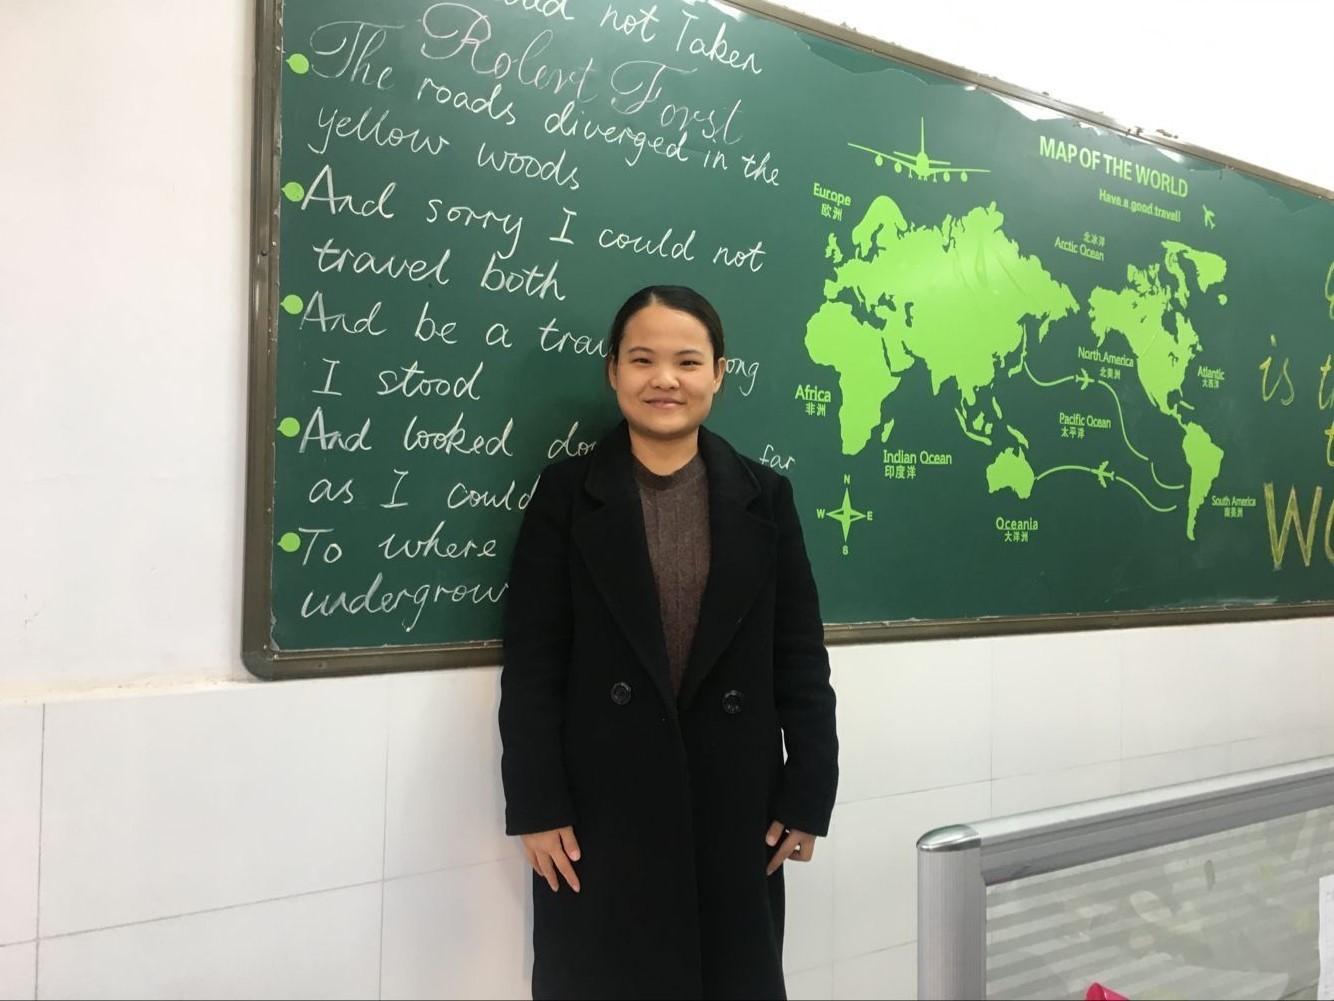 not Taken
Robert Forst
The roads diverged in the
yellow woods
And sorry I could not
travel both
And be a
I stood
And looked far
as I could
To where
MAP OF THE WORLD
Have a good travel!
Europe
欧洲
北冰洋
Arctic Ocean
North America
北美洲
Atlantic
大西洋
Africa
非洲
Pacific Ocean
太平洋
Indian Ocean
印度洋
N
W E
S
South America
南美洲
Oceania
大洋洲
is